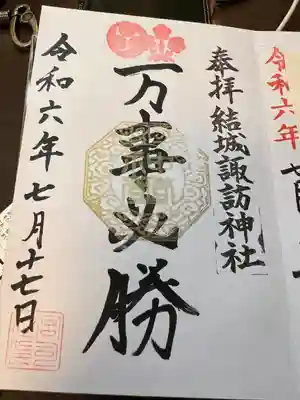 令和六年
七月
奉拝 結城諏訪神社
万事必勝
令和六年七月十七日